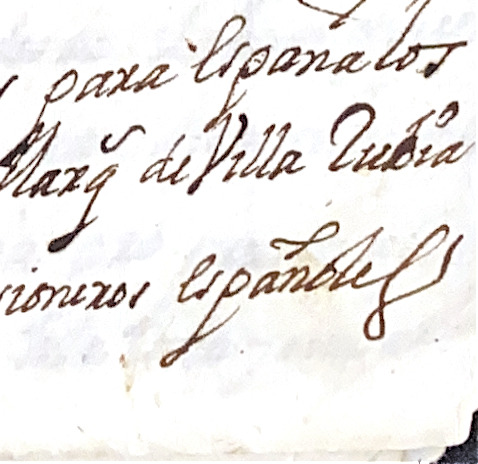 para España los
Marqs de Villa Rubia
sioneros españoles